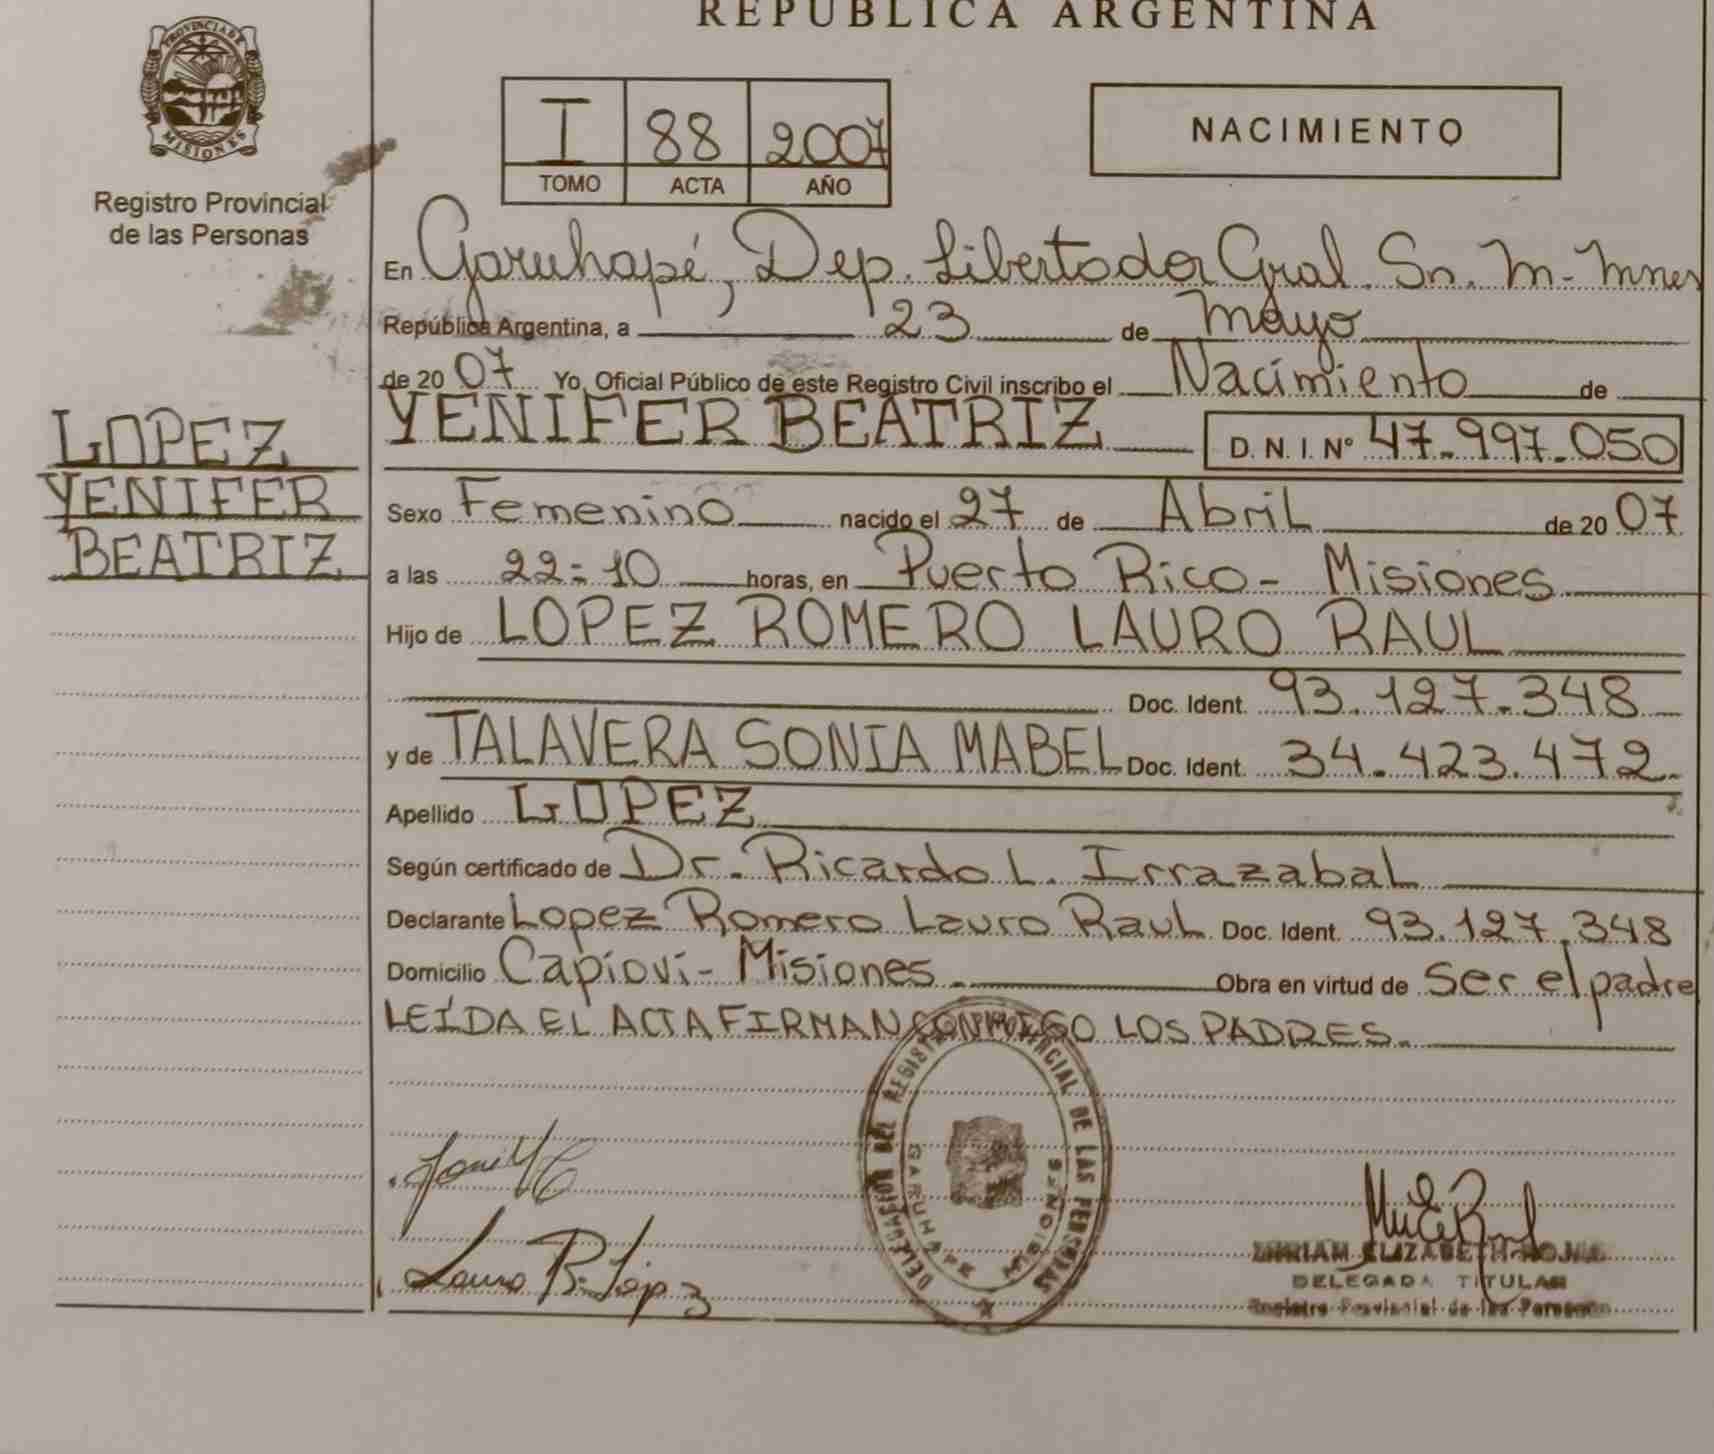 REPUBLICA ARGENTINA
PROVINCIA DE
MISIONES
Registro Provincial
de las Personas
I 88 2007
TOMO ACTA AÑO
NACIMIENTO
En Garuhapé, Dep. Libertador Gral. Sn. M- Mnes
República Argentina, a 23 de Mayo
de 20 07 Yo, Oficial Público de este Registro Civil inscribo el Nacimiento de
YENIFER BEATRIZ D. N. I. Nº 47.997.050
LOPEZ
YENIFER
BEATRIZ
Sexo Femenino nacido el 27 de Abril de 20 07
a las 22-10 horas, en Puerto Rico- Misiones
Hijo de LOPEZ ROMERO LAURO RAUL
Doc. Ident. 93.127.348
y de TALAVERA SONIA MABEL Doc. Ident. 34.423.472.
Apellido LOPEZ
Según certificado de Dr. Ricardo L. Irrazabal
Declarante Lopez Romero Lauro Raul Doc. Ident. 93.127.348
Domicilio Capioví- Misiones. Obra en virtud de Ser el padre
LEÍDA EL ACTA FIRMAN CONMIGO LOS PADRES.
DELEGACION DEL REGISTRO PROVINCIAL DE LAS PERSONAS
GARUHAPE MISIONES
Lauro R. López
MIRIAM ELIZABETH ROJAS
DELEGADA TITULAR
Registro Provincial de las Personas